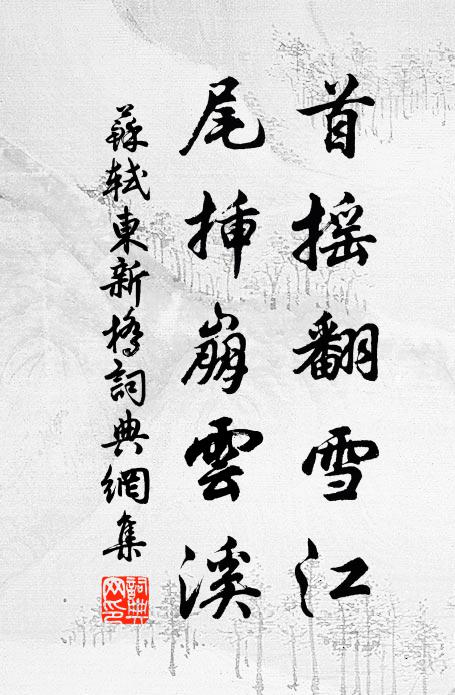 首摇翻雪江
尾插崩雲溪
蘇軾東新橋詞典網集
詞典
網印